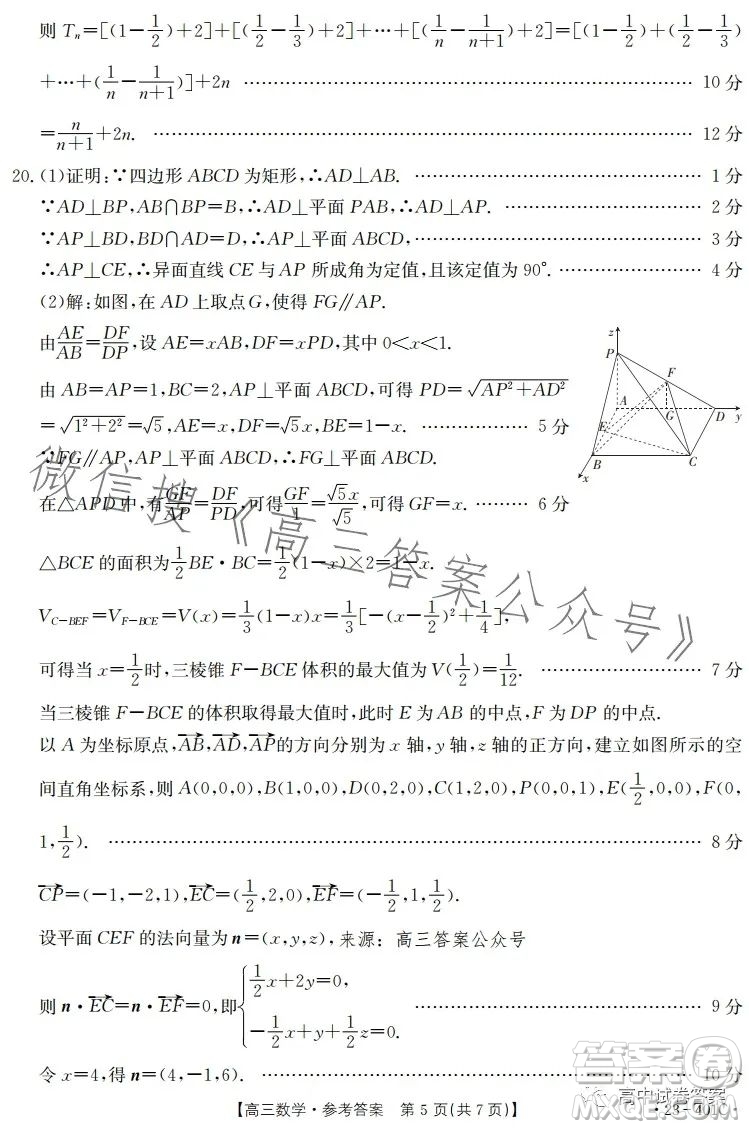 则 Tₙ=[(1-1/2)+2]+[(1/2-1/3)+2]+…+[(1/n-1/(n+1))+2]=[(1-1/2)+(1/2-1/3)
+…+(1/n-1/(n+1))]+2n ………………………… 10 分
=n/(n+1)+2n. ………………………… 12 分
20.(1)证明:∵四边形 ABCD 为矩形,∴AD⊥AB. ………………………… 1 分
∵AD⊥BP,AB∩BP=B,∴AD⊥平面 PAB,∴AD⊥AP. ………………… 2 分
∵AP⊥BD,BD∩AD=D,∴AP⊥平面 ABCD, ………………………… 3 分
∴AP⊥CE,∴异面直线 CE 与 AP 所成角为定值,且该定值为 90°. ……………… 4 分
(2)解:如图,在 AD 上取点 G,使得 FG∥AP.
由AE/AB=DF/DP,设 AE=xAB,DF=xPD,其中 0<x<1.
由 AB=AP=1,BC=2,AP⊥平面 ABCD,可得 PD=√(AP²+AD²)
=√(1²+2²)=√5,AE=x,DF=√5x,BE=1-x. ……………… 5 分
∵FG∥AP,AP⊥平面 ABCD,∴FG⊥平面 ABCD.
在△APD 中,有GF/AP=DF/PD,可得GF/1=√5x/√5,可得 GF=x. ……… 6 分
z
P
F
A
G
D
y
E
B
C
x
△BCE 的面积为1/2BE·BC=1/2(1-x)×2=1-x.
V_{C-BEF}=V_{F-BCE}=V(x)=1/3(1-x)x=1/3[-(x-1/2)²+1/4],
可得当 x=1/2时,三棱锥 F-BCE 体积的最大值为 V(1/2)=1/12. ……………… 7 分
当三棱锥 F-BCE 的体积取得最大值时,此时 E 为 AB 的中点,F 为 DP 的中点.
以 A 为坐标原点,AB→,AD→,AP→的方向分别为 x 轴,y 轴,z 轴的正方向,建立如图所示的空
间直角坐标系,则 A(0,0,0),B(1,0,0),D(0,2,0),C(1,2,0),P(0,0,1),E(1/2,0,0),F(0,
1,1/2). ………………………… 8 分
CP→=(-1,-2,1),EC→=(1/2,2,0),EF→=(-1/2,1,1/2).
设平面 CEF 的法向量为 n=(x,y,z), 来源: 高三答案公众号
则 n·EC→=n·EF→=0,即{1/2x+2y=0, -1/2x+y+1/2z=0. ………………………… 9 分
令 x=4,得 n=(4,-1,6). ………………………… 10 分
【高三数学·参考答案 第 5 页(共 7 页)】
·23-401C·
微信搜《高三答案公众号》
高中试卷答案
答案卷
MXQE.COM